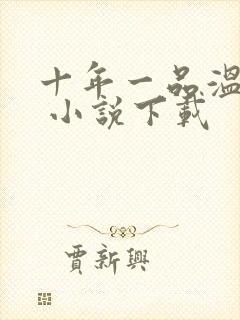 十年一品溫
小說下載
賈新興